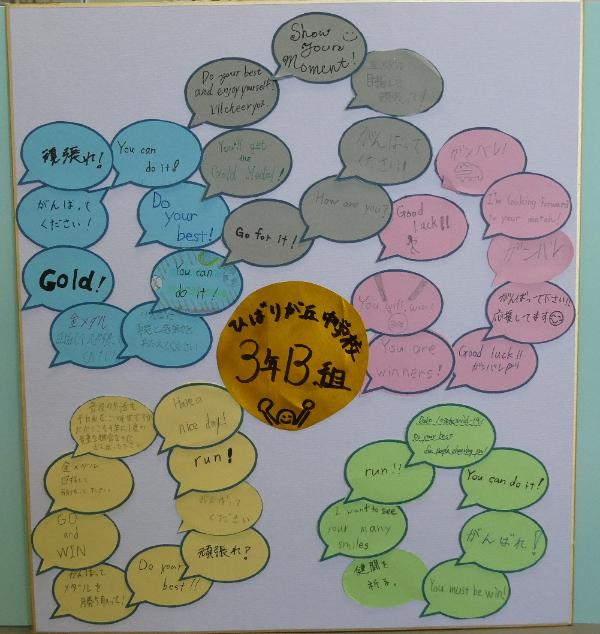 Show
your
Moment!
Do your best
and enjoy yourself.
I'll cheer you.
金メダル
目指して
頑張って!
You'll get
the
Gold Medal!
がんばって
ください!
How are you?
Go for it!
頑張れ!
You can
do it!
がんばって
ください!
Do
your
best!
Gold!
You can
do it!
金メダル
ガンバレ!
I'm looking forward
to your match!
Good
luck!!
ガンバレ
がんばって下さい!!
応援してます
You will win!
You are
winners!
Good luck!!
ガンバレ!!
ひばりが丘中学校
3年B組
Have a
nice day!
run!
金メダル
目指して
がんばって
ください
GO
and
WIN
頑張れ?
Do your
best!!
がんばって
メダルを
勝ち取って!
Do your best
run!!
You can do it!
I want to see
your many
smiles
がんばれ!
健闘を
祈る。
You must be win!